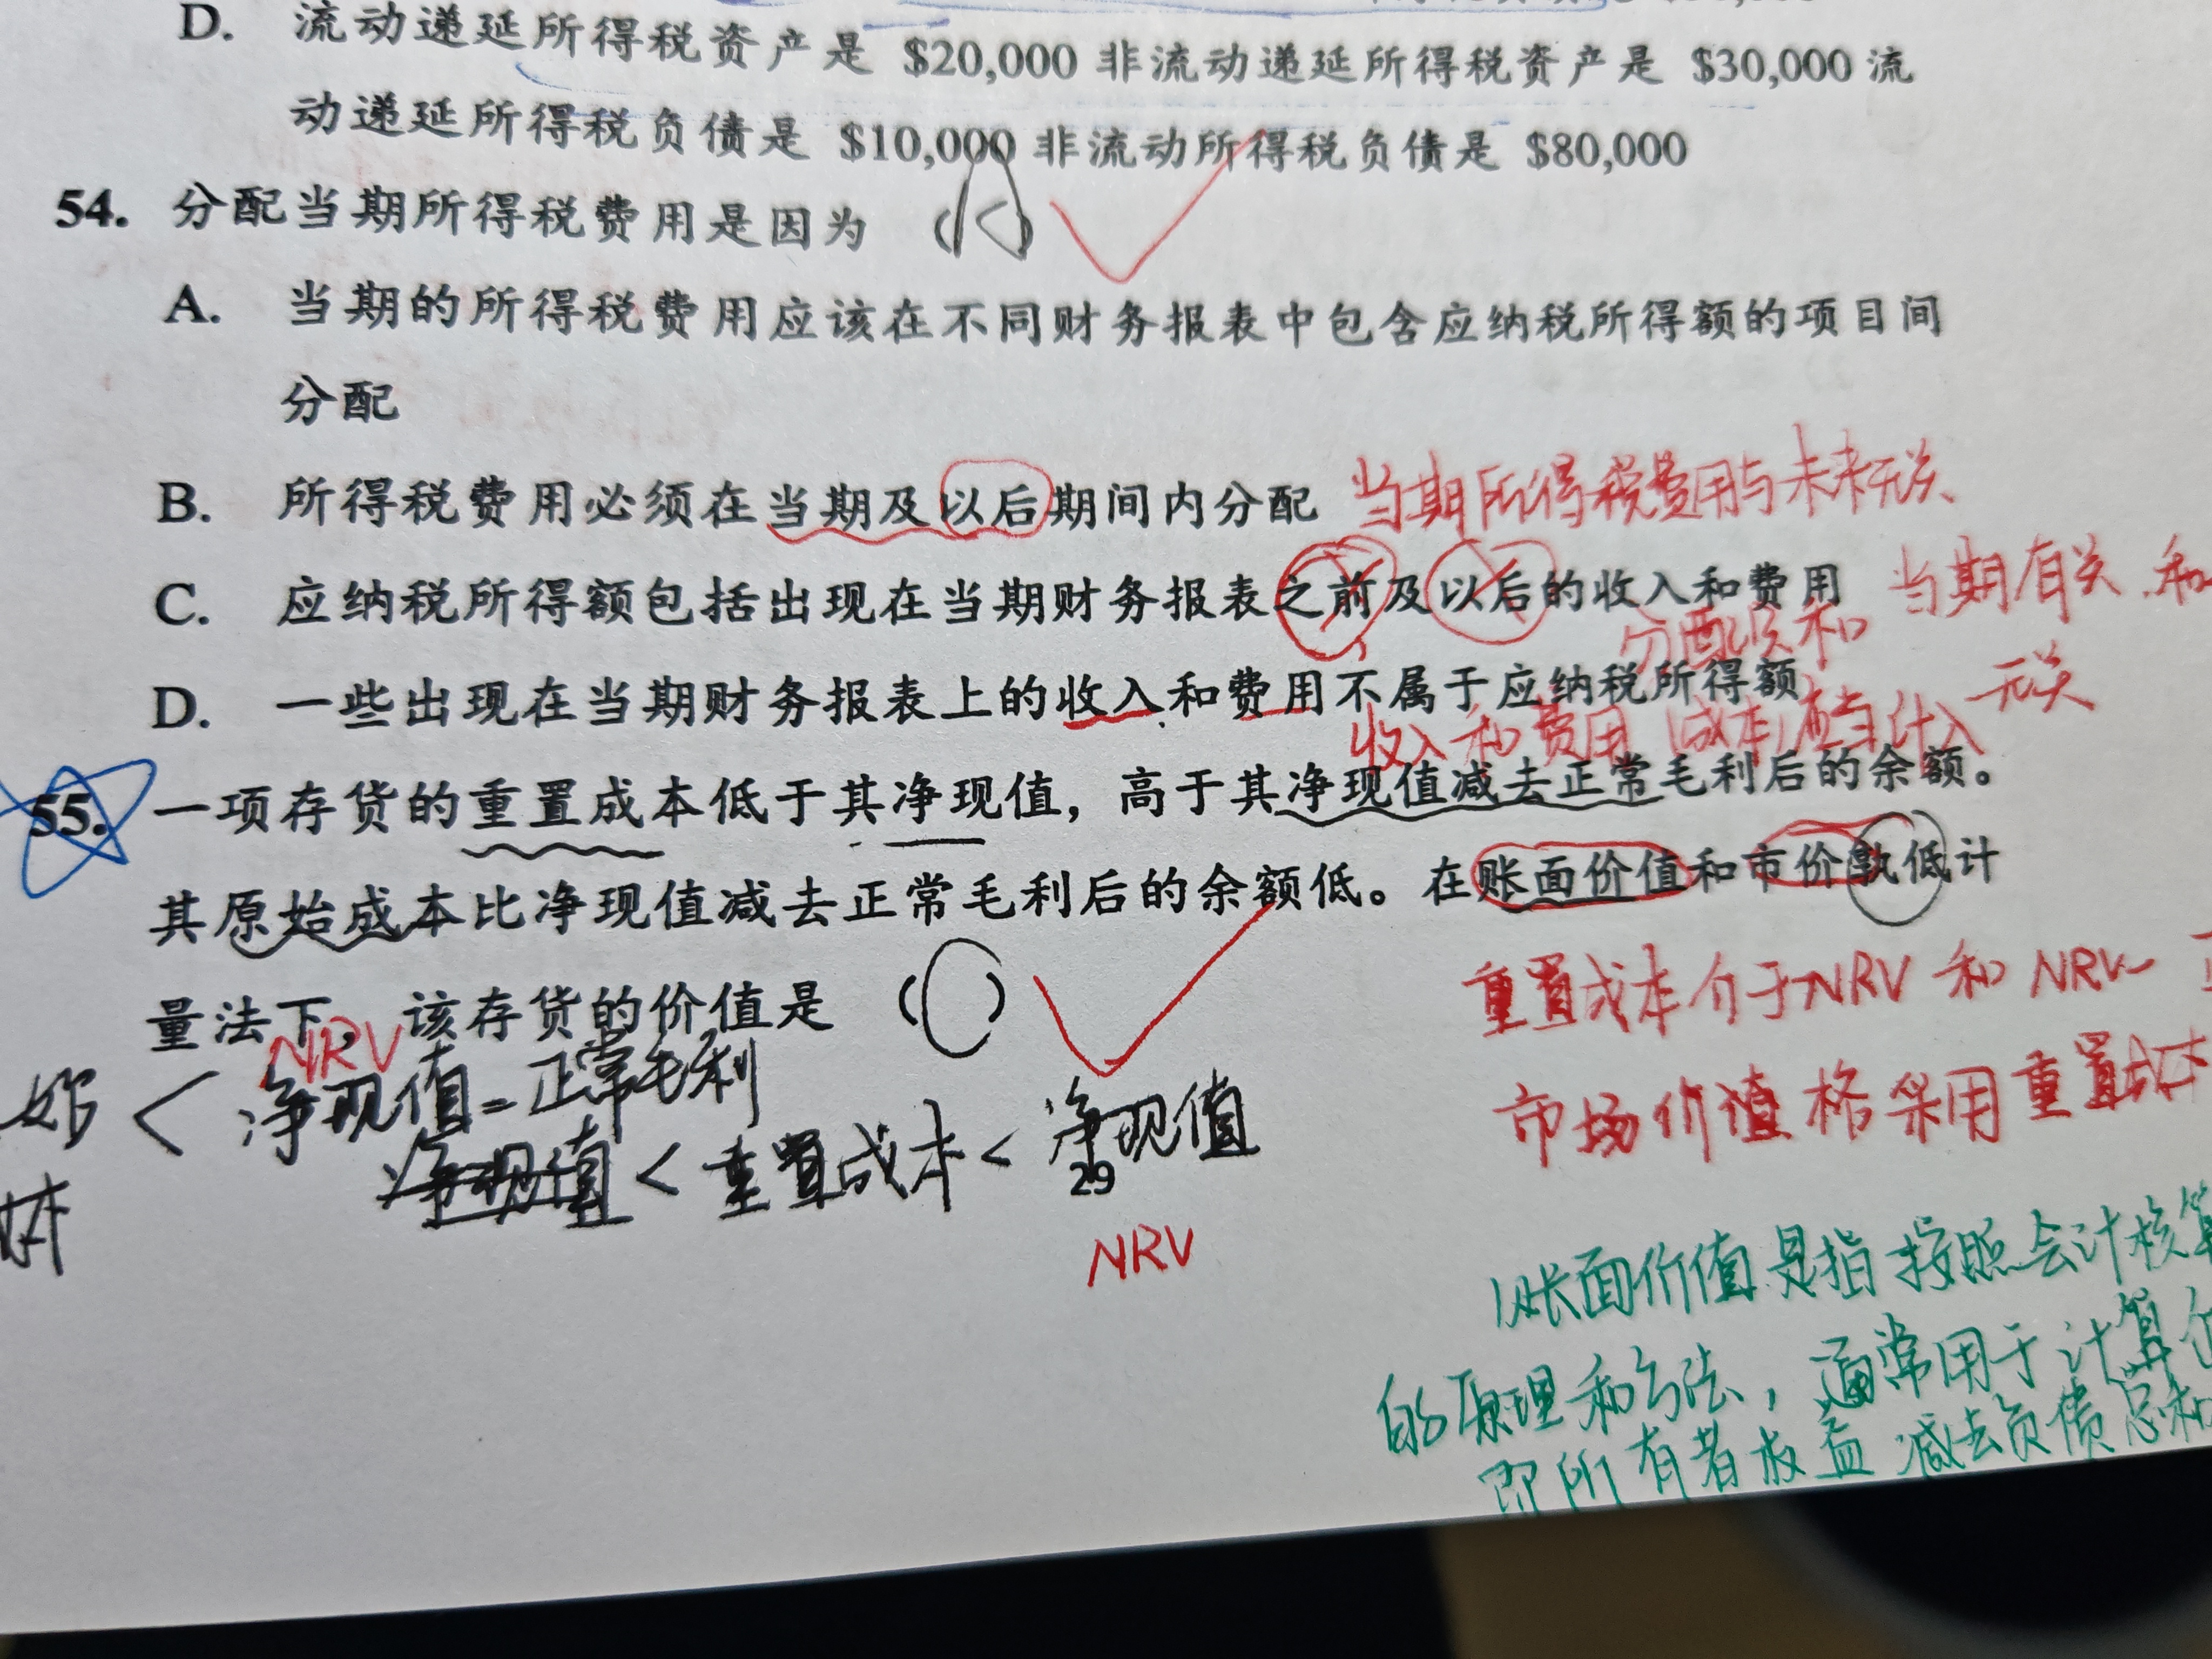 D. 流动递延所得税资产是 $20,000 非流动递延所得税资产是 $30,000 流
动递延所得税负债是 $10,000 非流动所得税负债是 $80,000
54. 分配当期所得税费用是因为 (A)
A. 当期的所得税费用应该在不同财务报表中包含应纳税所得额的项目间
分配
B. 所得税费用必须在当期及以后期间内分配 当期所得税费用与未来无关
C. 应纳税所得额包括出现在当期财务报表之前及以后的收入和费用 当期有关 和
分配 和
D. 一些出现在当期财务报表上的收入和费用不属于应纳税所得额 无关
收入和费用(成本)应当计入
55. 一项存货的重置成本低于其净现值，高于其净现值减去正常毛利后的余额。
其原始成本比净现值减去正常毛利后的余额低。在账面价值和市价孰低计
量法下，该存货的价值是 ( )
重置成本介于NRV 和 NRV-
NRV
< 净现值-正常毛利
市场价值格采用重置成本
净现值 < 重置成本 < 净现值
29
NRV
账面价值是指按照会计核算
的原理和方法，通常用于计算
即所有者权益 减去负债总和